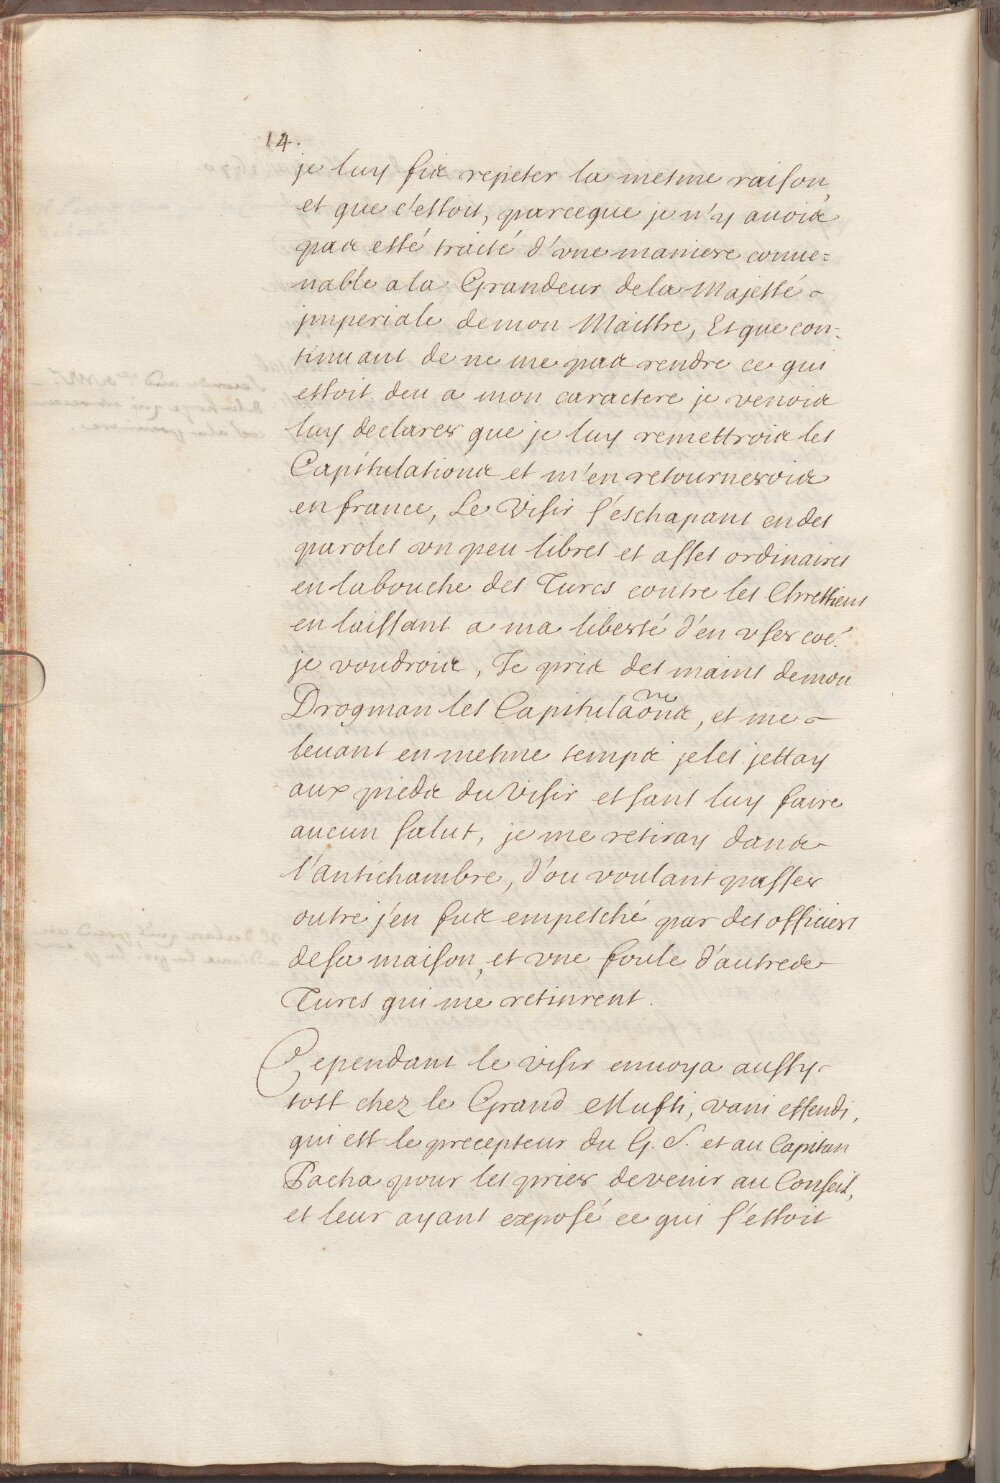 14.
je luy fis repeter la mesme raison,
et que c'estoit, parceque je n'y auois
pas esté traité d'vne maniere conue=
nable a la Grandeur dela Majesté
jmperiale demon Maistre, Et que con-
tinuant de ne me pas rendre ce qui
estoit deu a mon caractere je venois
luy declarer que je luy remettrois les
Capitulations et m'en retournerois
en france, Le Visir s'eschapant en des
paroles vn peu libres et asses ordinaires
en la bouche des Turcs contre les Chrestiens
en laissant a ma liberté d'en vser coe.
je voudrois, Je pris des mains demon
Drogman les Capitulaōns, et me
leuant en mesme temps je les jettay
aux pieds du Visir et sans luy faire
aucun salut, je me retiray dans
l'antichambre, d'ou voulant passer
outre j'en fus empesché par des officiers
desa maison, et vne foule d'autre de
Turcs qui me retinrent.
Cependant le visir enuoya aussy
tost chez le Grand Mufti, vani effendi,
qui est le precepteur du G. S. et au Capitan
Pacha pour les prier de venir au Conseil,
et leur ayant exposé ce qui s'estoit